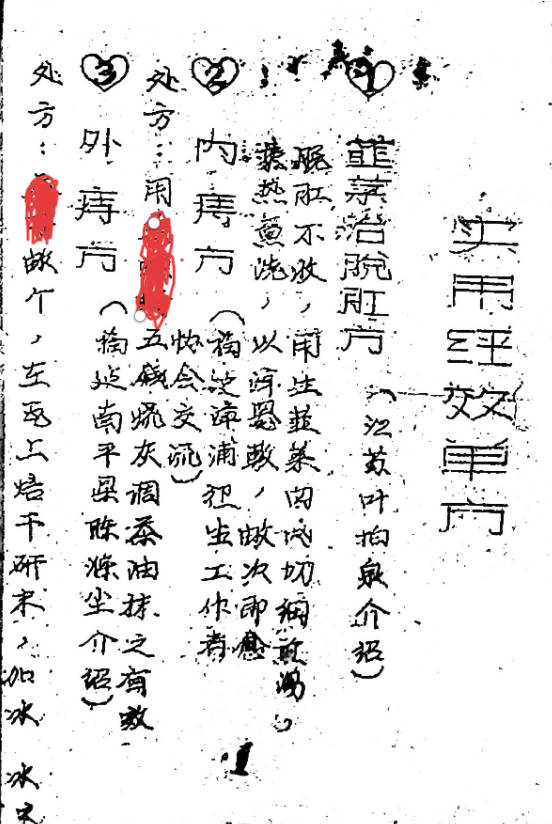 实用经效单方
1
韮菜治脱肛方(江苏叶柏泉介绍)
脱肛不收,用生韮菜 切细
热熏洗,以 敷,数次即愈
2
内痔方(福建漳浦 生工作者
交流)
处方:用
五钱烧灰调茶油抹之有效
3
外痔方(福建南平 陈 尘介绍)
处方:
数个,在瓦上焙干研末,加冰
冰
1